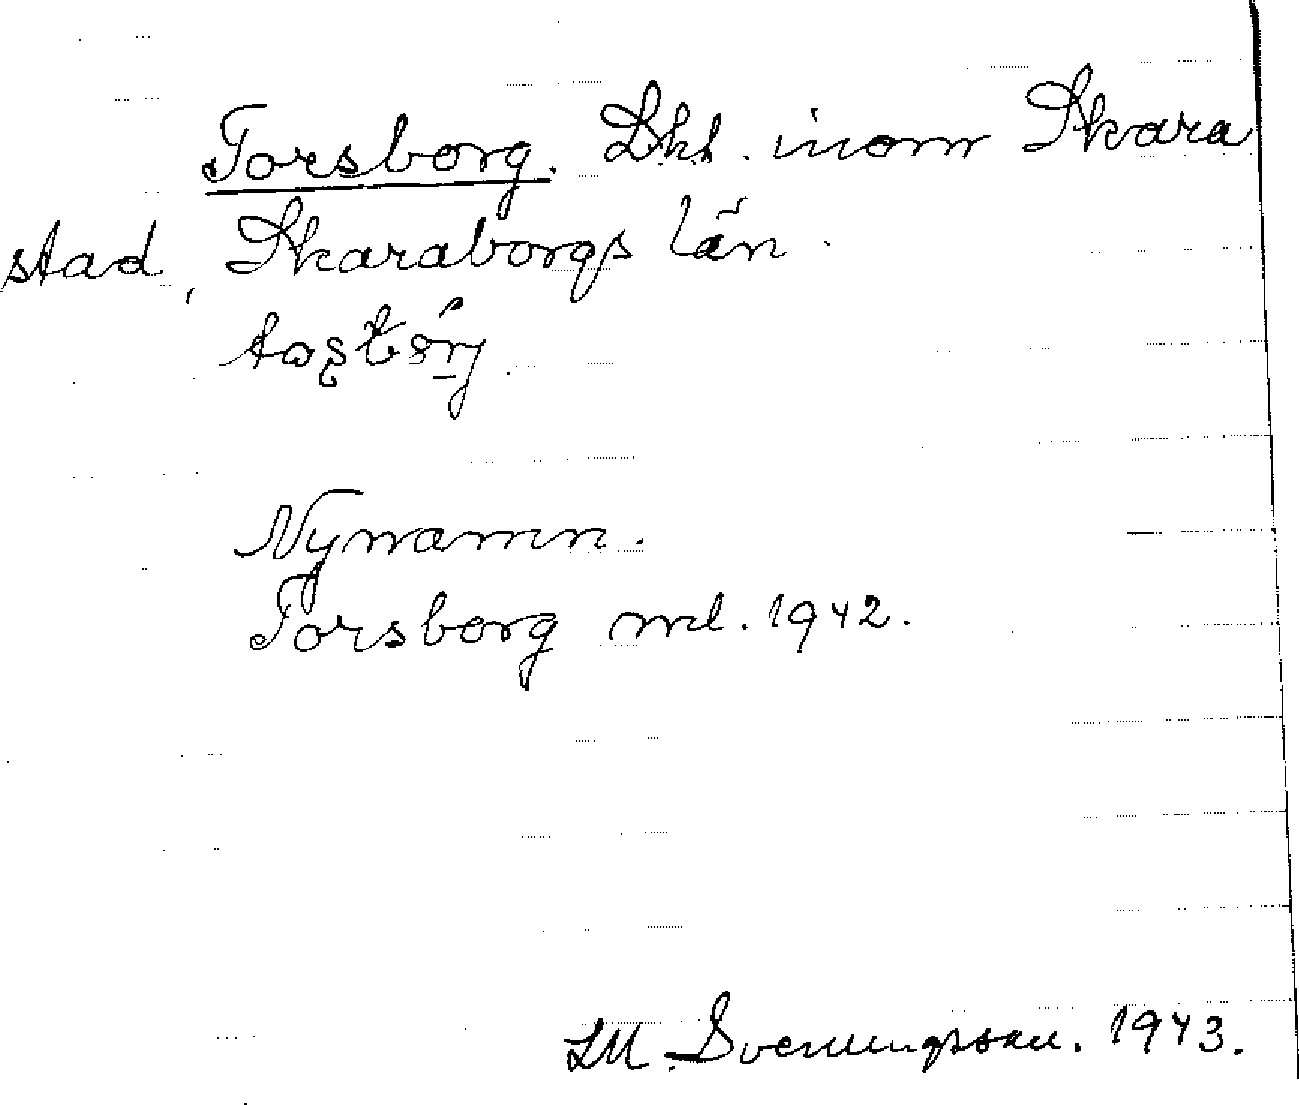 Torsborg. Lht. inom Skara
stad, Skaraborgs län.
Nynamn.
Torsborg ml. 1942.
M. Svenningsson. 1943.